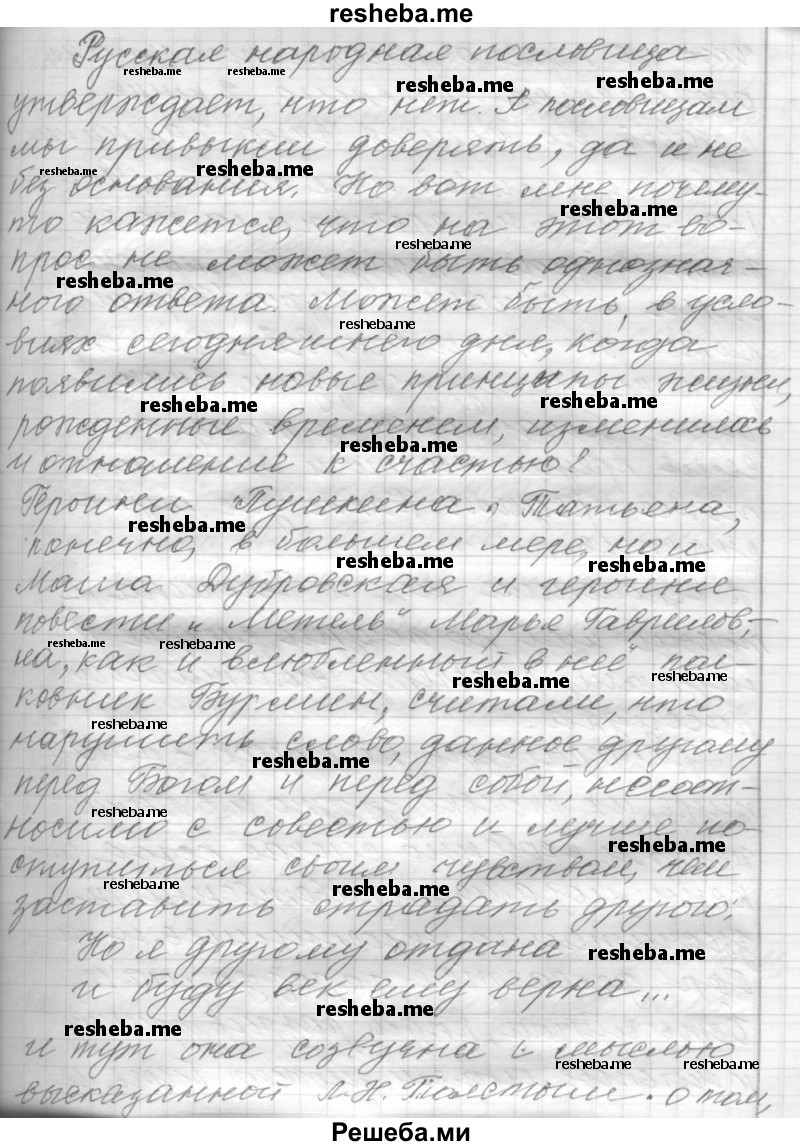 resheba.me
Русская народная пословица
resheba.me resheba.me
resheba.me resheba.me
утверждает, что нет. А пословицам
мы привыкли доверять, да и не
resheba.me resheba.me
без основания. Но вот мне почему-
resheba.me
то кажется, что на этот во-
resheba.me
прос не может быть однознач-
resheba.me
ного ответа. Может быть, в усло-
resheba.me
виях сегодняшнего дня, когда
появились новые принципы жизни,
resheba.me resheba.me
рожденные временем, изменилось
resheba.me
и отношение к счастью?
Героини Пушкина. Татьяна,
resheba.me
конечно, в большем мере, но и
resheba.me resheba.me
Маша Дубровская и героиня
повести "Метель" Марья Гаврилов-
resheba.me resheba.me
на, как и влюбленный в неё пол-
resheba.me resheba.me
ковник Бурмин, считали, что
resheba.me
нарушить слово, данное другому
resheba.me
перед Богом и перед собой, несоот-
resheba.me
носимо с совестью и лучше по-
resheba.me
ступиться своим чувством, чем
resheba.me resheba.me
заставить страдать другого:
Но я другому отдана
resheba.me
и буду век ему верна...
resheba.me
resheba.me
и тут она созвучна с мыслью
resheba.me resheba.me
высказанной Л.Н. Толстым. о том,
Решеба.ми